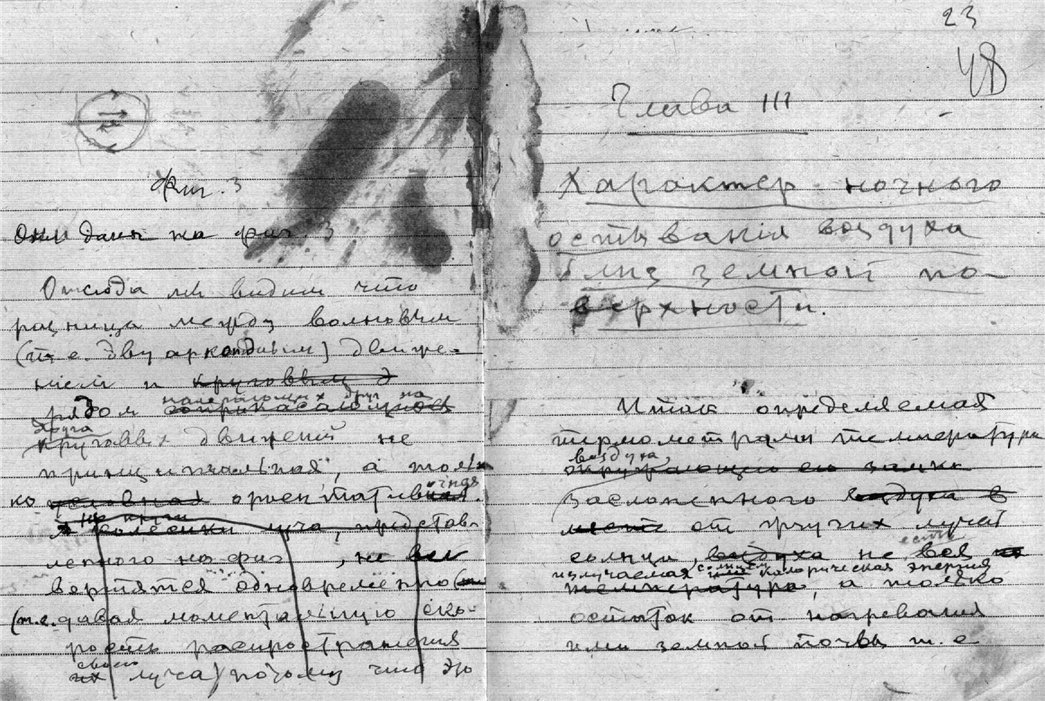 Фиг. 3
Они даны на фиг. 3
Отсюда мы видим что
разница между волновым
(т.е. двуаркоидным) движе-
нием и круговым д
налегающих друг на
рядом соприкасающихся
друга
круговых движений не
принципиальная, а толь
ко условная ориентативная.
на круги
колесики луча, представ-
ленного на фиг , не все
вертятся одновременно
(т.е. давая моментальную ско-
рость распространения
своего
их луча) потому что это
23
48
Глава III
Характер ночного
остывания воздуха
близ земной по-
верхности.
Итак определяемая
термометрами температура
воздуха,
окружающего его
заслоненного воздуха в
месте от жгучих лучей
есть
солнца, воздуха не вся
излучаемая солнцем калорическая энергия
температура, а только
остаток от нагревания
ими земной почвы т.е